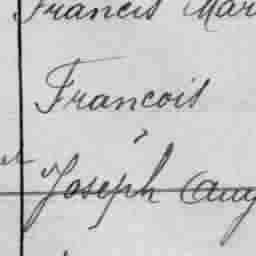 Francis Mar
Francois
,
Joseph Aug